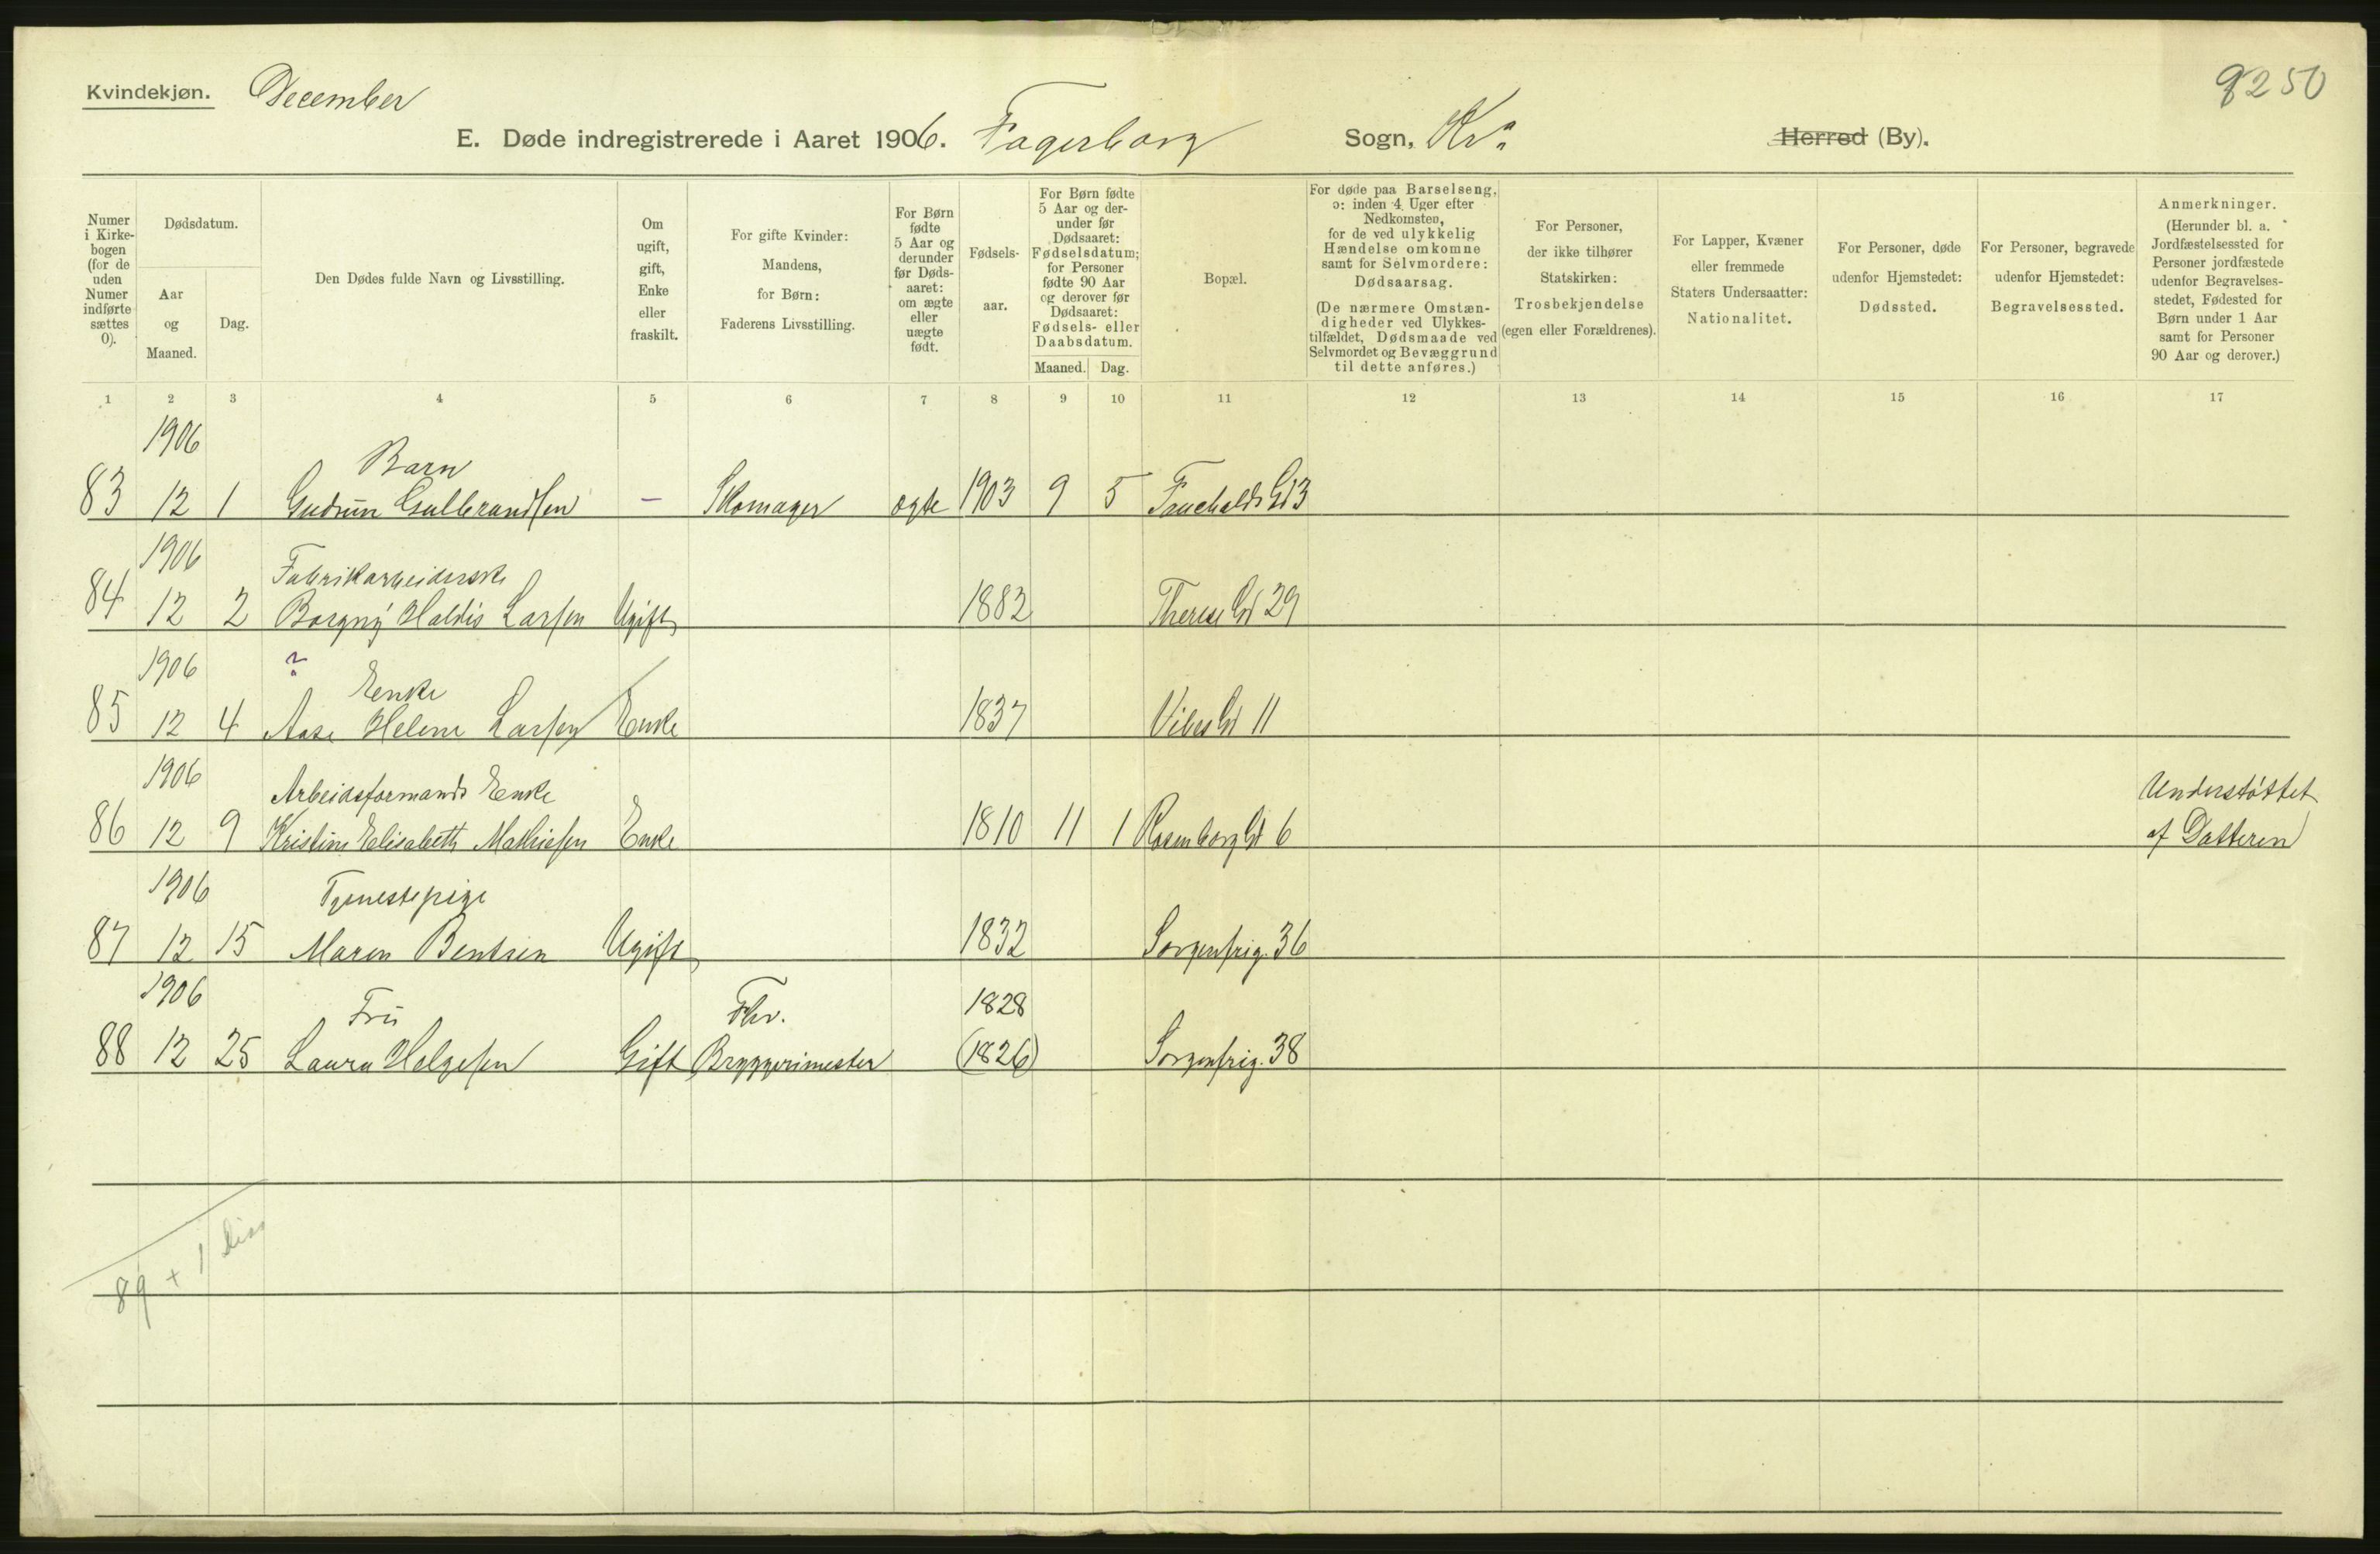 Kvindekjøn. December
9250
E. Døde indregistrerede i Aaret 1906. Fagerborg Sogn, Kr.a Herred (By).
Numer i Kirkebogen (for de uden Numer indførte sættes 0).
Dødsdatum.
Aar og Maaned.
Dag.
Den Dødes fulde Navn og Livsstilling.
Om ugift, gift, Enke eller fraskilt.
For gifte Kvinder: Mandens, for Børn: Faderens Livsstilling.
For Børn fødte 5 Aar og derunder før Dødsaaret: om ægte eller uægte født.
Fødselsaar.
For Børn fødte 5 Aar og derunder før Dødsaaret: Fødselsdatum; for Personer fødte 90 Aar og derover før Dødsaaret: Fødsels- eller Daabsdatum.
Maaned. Dag.
Bopæl.
For døde paa Barselseng, ɔ: inden 4 Uger efter Nedkomsten, for de ved ulykkelig Hændelse omkomne samt for Selvmordere: Dødsaarsag.
(De nærmere Omstændigheder ved Ulykkestilfældet, Dødsmaade ved Selvmordet og Bevæggrund til dette anføres.)
For Personer, der ikke tilhører Statskirken: Trosbekjendelse (egen eller Forældrenes).
For Lapper, Kvæner eller fremmede Staters Undersaatter: Nationalitet.
For Personer, døde udenfor Hjemstedet: Dødssted.
For Personer, begravede udenfor Hjemstedet: Begravelsessted.
Anmerkninger. (Herunder bl. a. Jordfæstelsessted for Personer jordfæstede udenfor Begravelsesstedet, Fødested for Børn under 1 Aar samt for Personer 90 Aar og derover.)
1 2 3 4 5 6 7 8 9 10 11 12 13 14 15 16 17
1906 Barn
83 12 1 Gudrun Gulbrandsen — Skomager ægte 1903 9 5 Fauchalds Gd 3
1906 Fabrikarbeiderske
84 12 2 Borgny Haldis Larsen Ugift 1882 Therese Gd 29
1906 ? Enke
85 12 4 Aase Helene Larsen Enke 1837 Vibes Gd 11
1906 Arbeidsformands Enke Understøttet
86 12 9 Kristine Elisabeth Mathiesen Enke 1810 11 1 Rosenborg Gd 6 af Datteren
1906 Tjenestepige
87 12 15 Maren Bentsen Ugift 1832 Sorgenfrig. 36
1906 Fru Fhv. 1828
88 12 25 Laura Helgesen Gift Bryggerimester (1826) Sorgenfrig. 38
89 + 1 diss